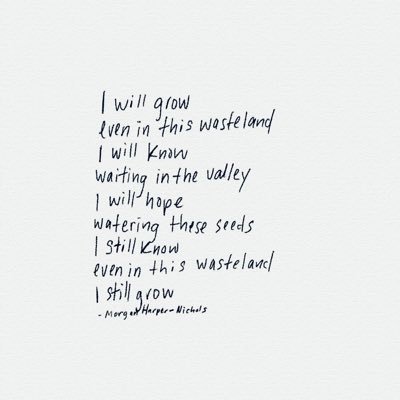 I will grow
even in this wasteland
I will know
waiting in the valley
I will hope
watering these seeds
I still know
even in this wasteland
I still grow
- Morgan Harper-Nichols